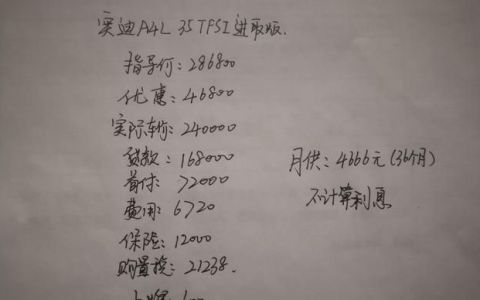 奥迪A4L 35TFSI 进取版.
指导价: 286800
优惠: 46800
实际车价: 240000
贷款: 168000
首付: 72000
费用: 6720
保险: 12000
购置税: 21238.
月供: 4666元(36个月)
不计算利息